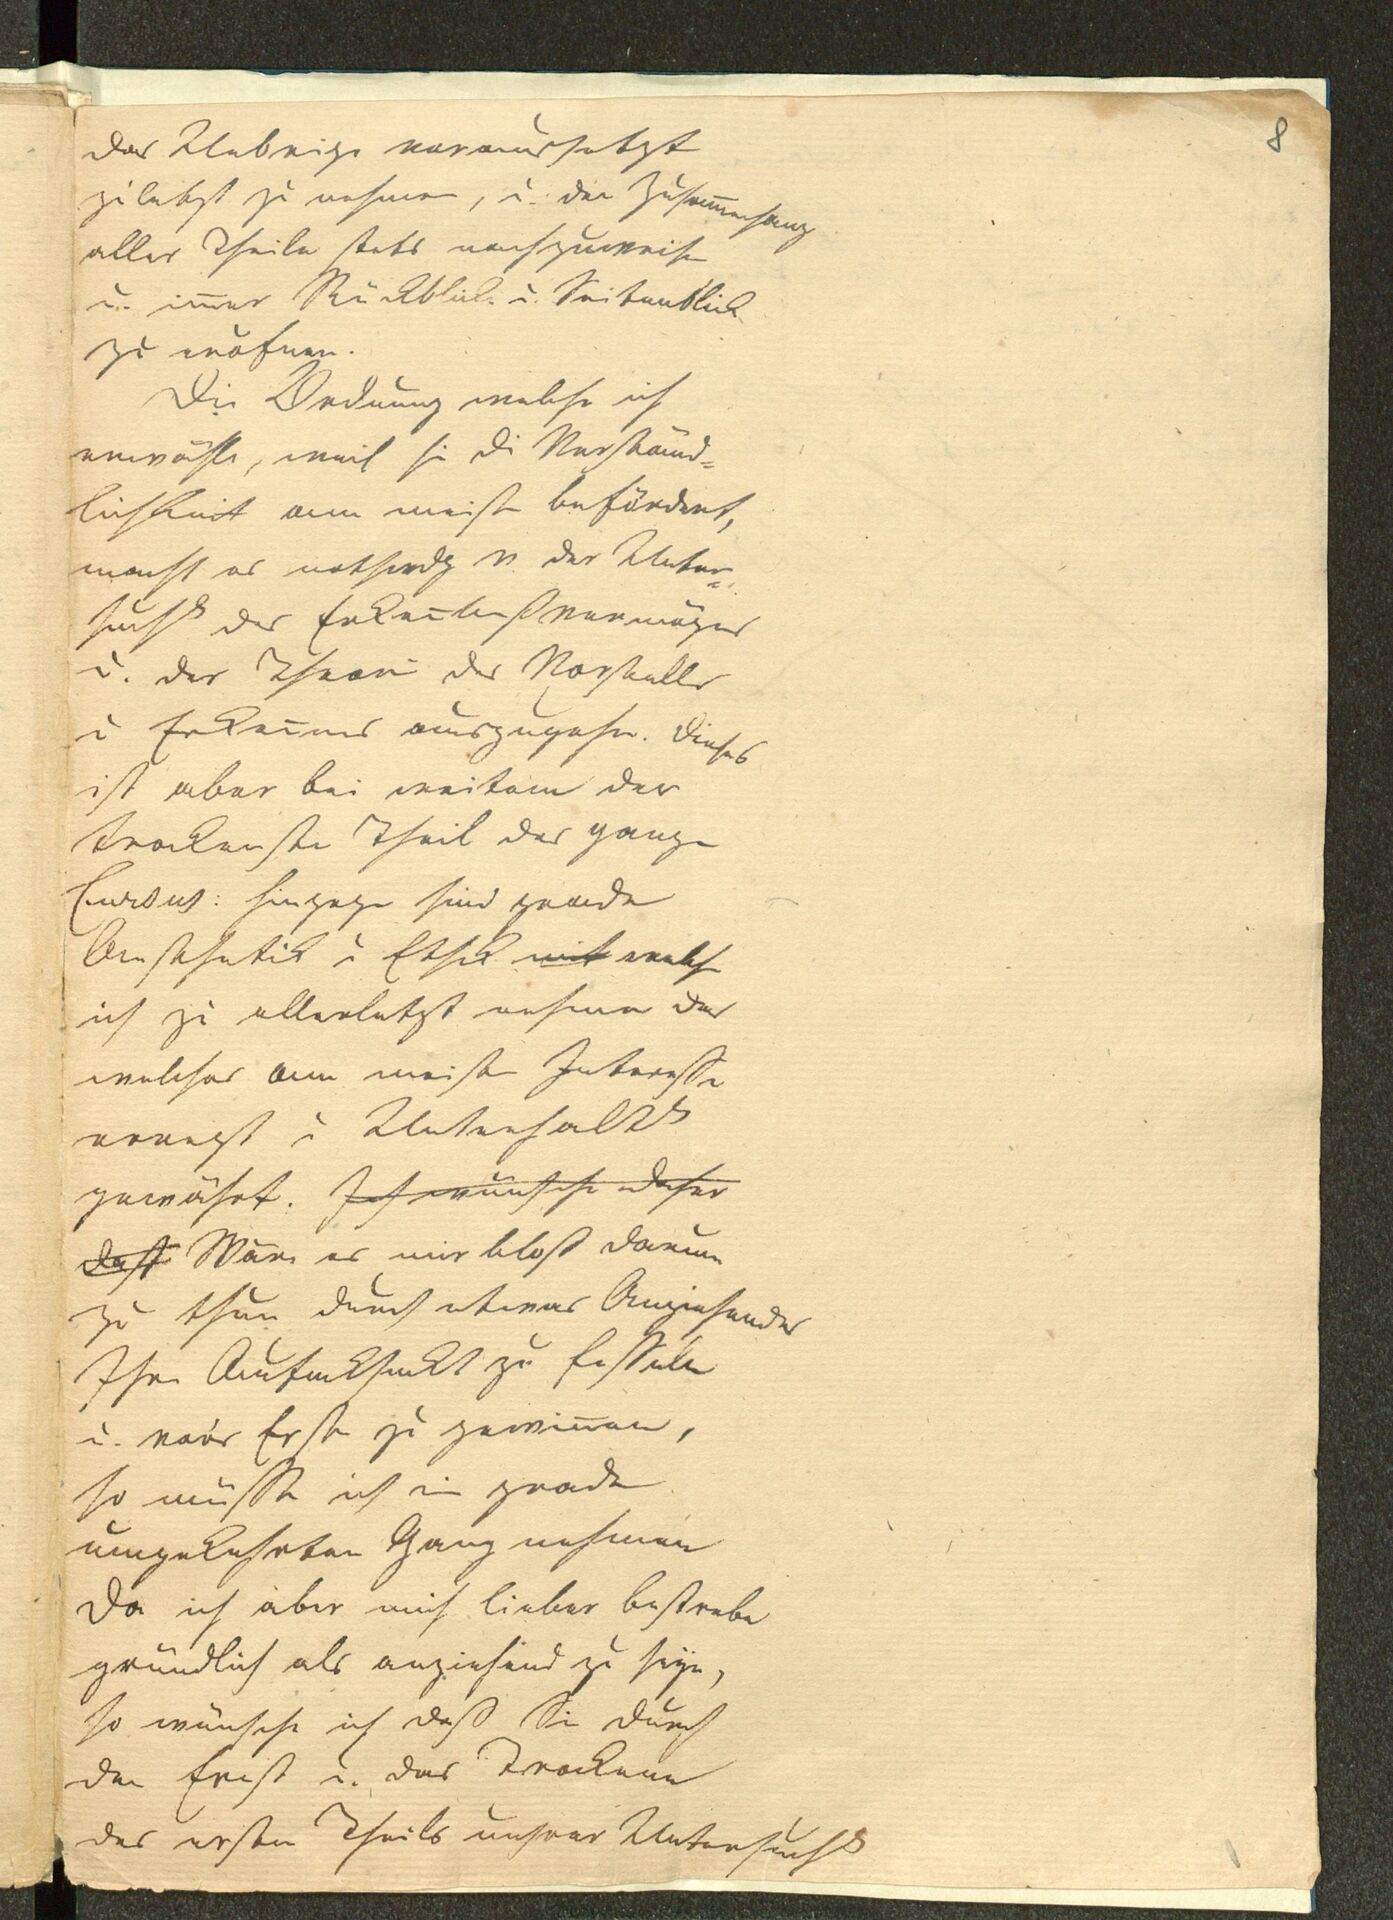 8
das Uebrige voraussetzt
zuletzt zu nehmen, u. den Zusam̄enhang
aller Theile stets nachzuweisen
u. im̄er Rückblick u. Seitenblick
zu eröfnen.
Die Ordnung welche ich
erwähle, weil sie die Verständ=
lichkeit am meisten befördert,
macht es nothwdg v. der Unter=
suchg des Erken̄tnißvermögens
u. der Theorie des Vorstellens
u Erken̄ens auszugehn. Dieses
ist aber bei weitem der
trockenste Theil des ganzen
Cursus: hingegen sind grade
Aesthetik u Ethik mit welche
ich zu allerletzt nehme das
welches am meisten Interesse
erregt u Unterhaltg
gewährt. Ich wünsche daher
daß Wäre es mir bloß darum
zu thun durch etwas Anziehendes
Ihre Aufmerksamkeit zu fesseln
u. vor's Erste zu gewin̄en,
so müßte ich ein grade
umgekehrten Gang nehmen
Da ich aber mich lieber bestrebe
gründlich als anziehend zu seyn,
so wünsche ich daß Sie durch
den Ernst u. das Trockene
des ersten Theils unsrer Untersuchg